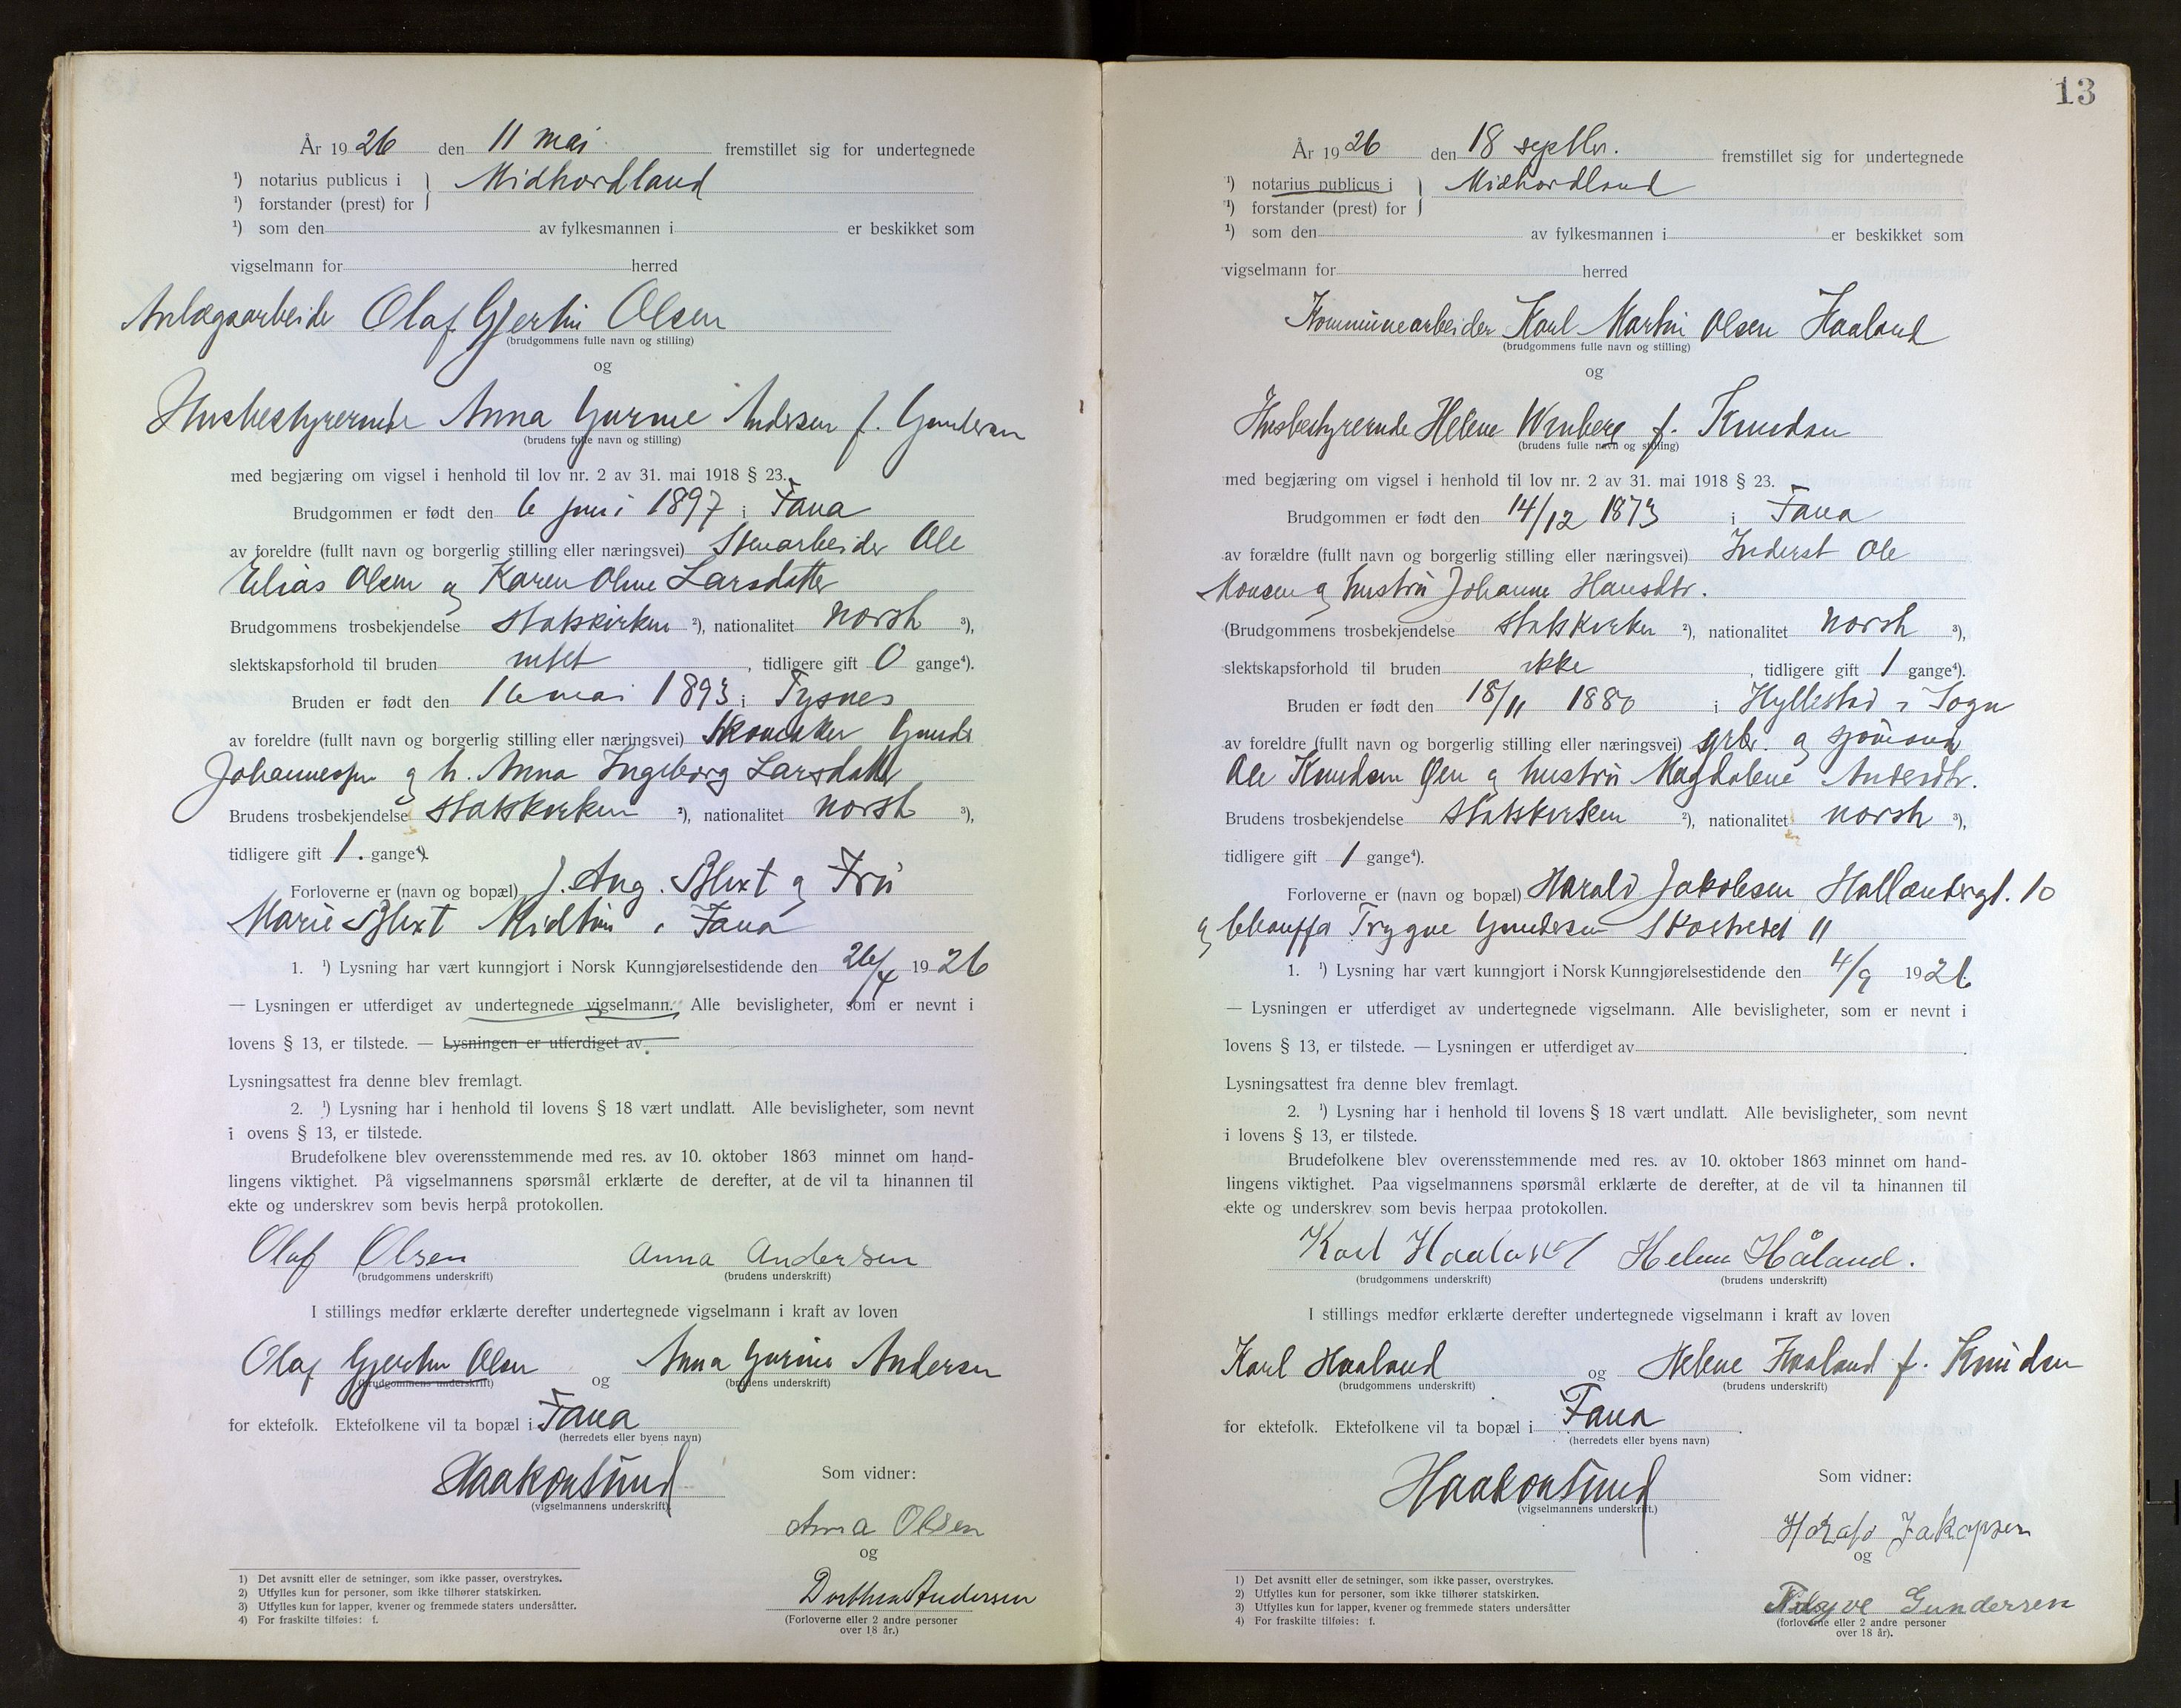 År 1926 den 11 mai fremstillet sig for undertegnede
¹) notarius publicus i } Midhordland
¹) forstander (prest) for
¹) som den av fylkesmannen i er beskikket som
vigselmann for herred
Anlægsarbeide Olaf Gjertin Olsen
(brudgommens fulle navn og stilling)
og
Husbestyrerinde Anna Gurine Andersen f. Gundersen
(brudens fulle navn og stilling)
med begjæring om vigsel i henhold til lov nr. 2 av 31. mai 1918 § 23.
Brudgommen er født den 6 juni 1897 i Fana
av foreldre (fullt navn og borgerlig stilling eller næringsvei) Stenarbeider Ole
Elias Olsen og Karen Oline Larsdatter
Brudgommens trosbekjendelse statskirken ²), nationalitet norsk ³),
slektskapsforhold til bruden intet, tidligere gift 0 gange⁴).
Bruden er født den 16 mai 1893 i Tysnes
av foreldre (fullt navn og borgerlig stilling eller næringsvei) Skomaker Gunder
Johannessen og h. Anna Ingeborg Larsdatter
Brudens trosbekjendelse statskirken ²), nationalitet norsk ³),
tidligere gift 1. gange⁴).
Forloverne er (navn og bopæl) J. Aug. Blixt og Fru
Marie Blixt Midtun i Fana
1. ¹) Lysning har vært kunngjort i Norsk Kunngjørelsestidende den 26/4 1926
— Lysningen er utferdiget av undertegnede vigselmann. Alle bevisligheter, som er nevnt i
lovens § 13, er tilstede. — Lysningen er utferdiget av
Lysningsattest fra denne blev fremlagt.
2. ¹) Lysning har i henhold til lovens § 18 vært undlatt. Alle bevisligheter, som nevnt
i ovens § 13, er tilstede.
Brudefolkene blev overensstemmende med res. av 10. oktober 1863 minnet om hand-
lingens viktighet. På vigselmannens spørsmål erklærte de derefter, at de vil ta hinannen til
ekte og underskrev som bevis herpå protokollen.
Olaf Olsen Anna Andersen
(brudgommens underskrift) (brudens underskrift)
I stillings medfør erklærte derefter undertegnede vigselmann i kraft av loven
Olaf Gjertin Olsen og Anna Gurine Andersen
(brudgommens underskrift) (brudens underskrift)
for ektefolk. Ektefolkene vil ta bopæl i Fana
(herredets eller byens navn)
Haakonsund
(vigselmannens underskrift)
Som vidner:
Anna Olsen
og
Dorthea Andersen
(Forloverne eller 2 andre personer
over 18 år.)
1) Det avsnitt eller de setninger, som ikke passer, overstrykes.
2) Utfylles kun for personer, som ikke tilhører statskirken.
3) Utfylles kun for lapper, kvener og fremmede staters undersåtter.
4) For fraskilte tilføies: f.
13
År 1926 den 18 septbr. fremstillet sig for undertegnede
¹) notarius publicus i } Midhordland
¹) forstander (prest) for
¹) som den av fylkesmannen i er beskikket som
vigselmann for herred
Kommunearbeider Karl Martin Olsen Haaland
(brudgommens fulle navn og stilling)
og
Husbestyrerinde Helene Winberg f. Knudsen
(brudens fulle navn og stilling)
med begjæring om vigsel i henhold til lov nr. 2 av 31. mai 1918 § 23.
Brudgommen er født den 14/12 1873 i Fana
av forældre (fullt navn og borgerlig stilling eller næringsvei) Inderst Ole
Monsen og hustru Johanne Hansdtr.
(Brudgommens trosbekjendelse statskirken ²), nationalitet norsk ³),
slektskapsforhold til bruden ikke, tidligere gift 1 gange⁴).
Bruden er født den 18/11 1880 i Hyllestad i Sogn
av foreldre (fullt navn og borgerlig stilling eller næringsvei) grbr. og sjømann
Ole Knudsen Øen og hustru Magdalene Andersdtr.
Brudens trosbekjendelse statskirken ²), nationalitet norsk ³),
tidligere gift 1 gange⁴).
Forloverne er (navn og bopæl) Harald Jakobsen Hollændergt. 10
og Chauffør Trygve Gundersen Skostredet 11
1. ¹) Lysning har vært kunngjort i Norsk Kunngjørelsestidende den 4/9 1926
— Lysningen er utferdiget av undertegnede vigselmann. Alle bevisligheter, som er nevnt i
lovens § 13, er tilstede. — Lysningen er utferdiget av
Lysningsattest fra denne blev fremlagt.
2. ¹) Lysning har i henhold til lovens § 18 vært undlatt. Alle bevisligheter, som nevnt
i lovens § 13, er tilstede.
Brudefolkene blev overensstemmende med res. av 10. oktober 1863 minnet om hand-
lingens viktighet. Paa vigselmannens spørsmål erklærte de derefter, at de vil ta hinannen til
ekte og underskrev som bevis herpaa protokollen.
Karl Haaland Helene Håland.
(brudgommens underskrift) (brudens underskrift)
I stillings medfør erklærte derefter undertegnede vigselmann i kraft av loven
Karl Haaland og Helene Haaland f. Knudsen
(brudgommens underskrift) (brudens underskrift)
for ektefolk. Ektefolkene vil ta bopæl i Fana
(herredets eller byens navn)
Haakonsund
(vigselmannens underskrift.)
Som vidner:
Harald Jakopsen
og
Trygve Gundersen
(forloverne eller 2 andre personer
over 18 år).
1) Det avsnitt eller de setninger, som ikke passer, overstrykes.
2) Utfylles kun for personer, som ikke tilhører statskirken.
3) Utfylles kun for lapper, kvener og fremmede staters undersåtter
4) For fraskilte tilføies: f.